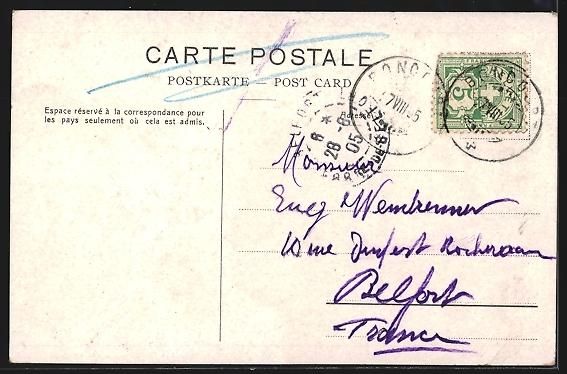 CARTE POSTALE
POSTKARTE — POST CARD
Espace réservé à la correspondance pour
les pays seulement où cela est admis.
Adresse
5
7 VIII 05
28 -8
05
Monsieur
Eug
10 rue Denfert Rochereau
Belfort
France